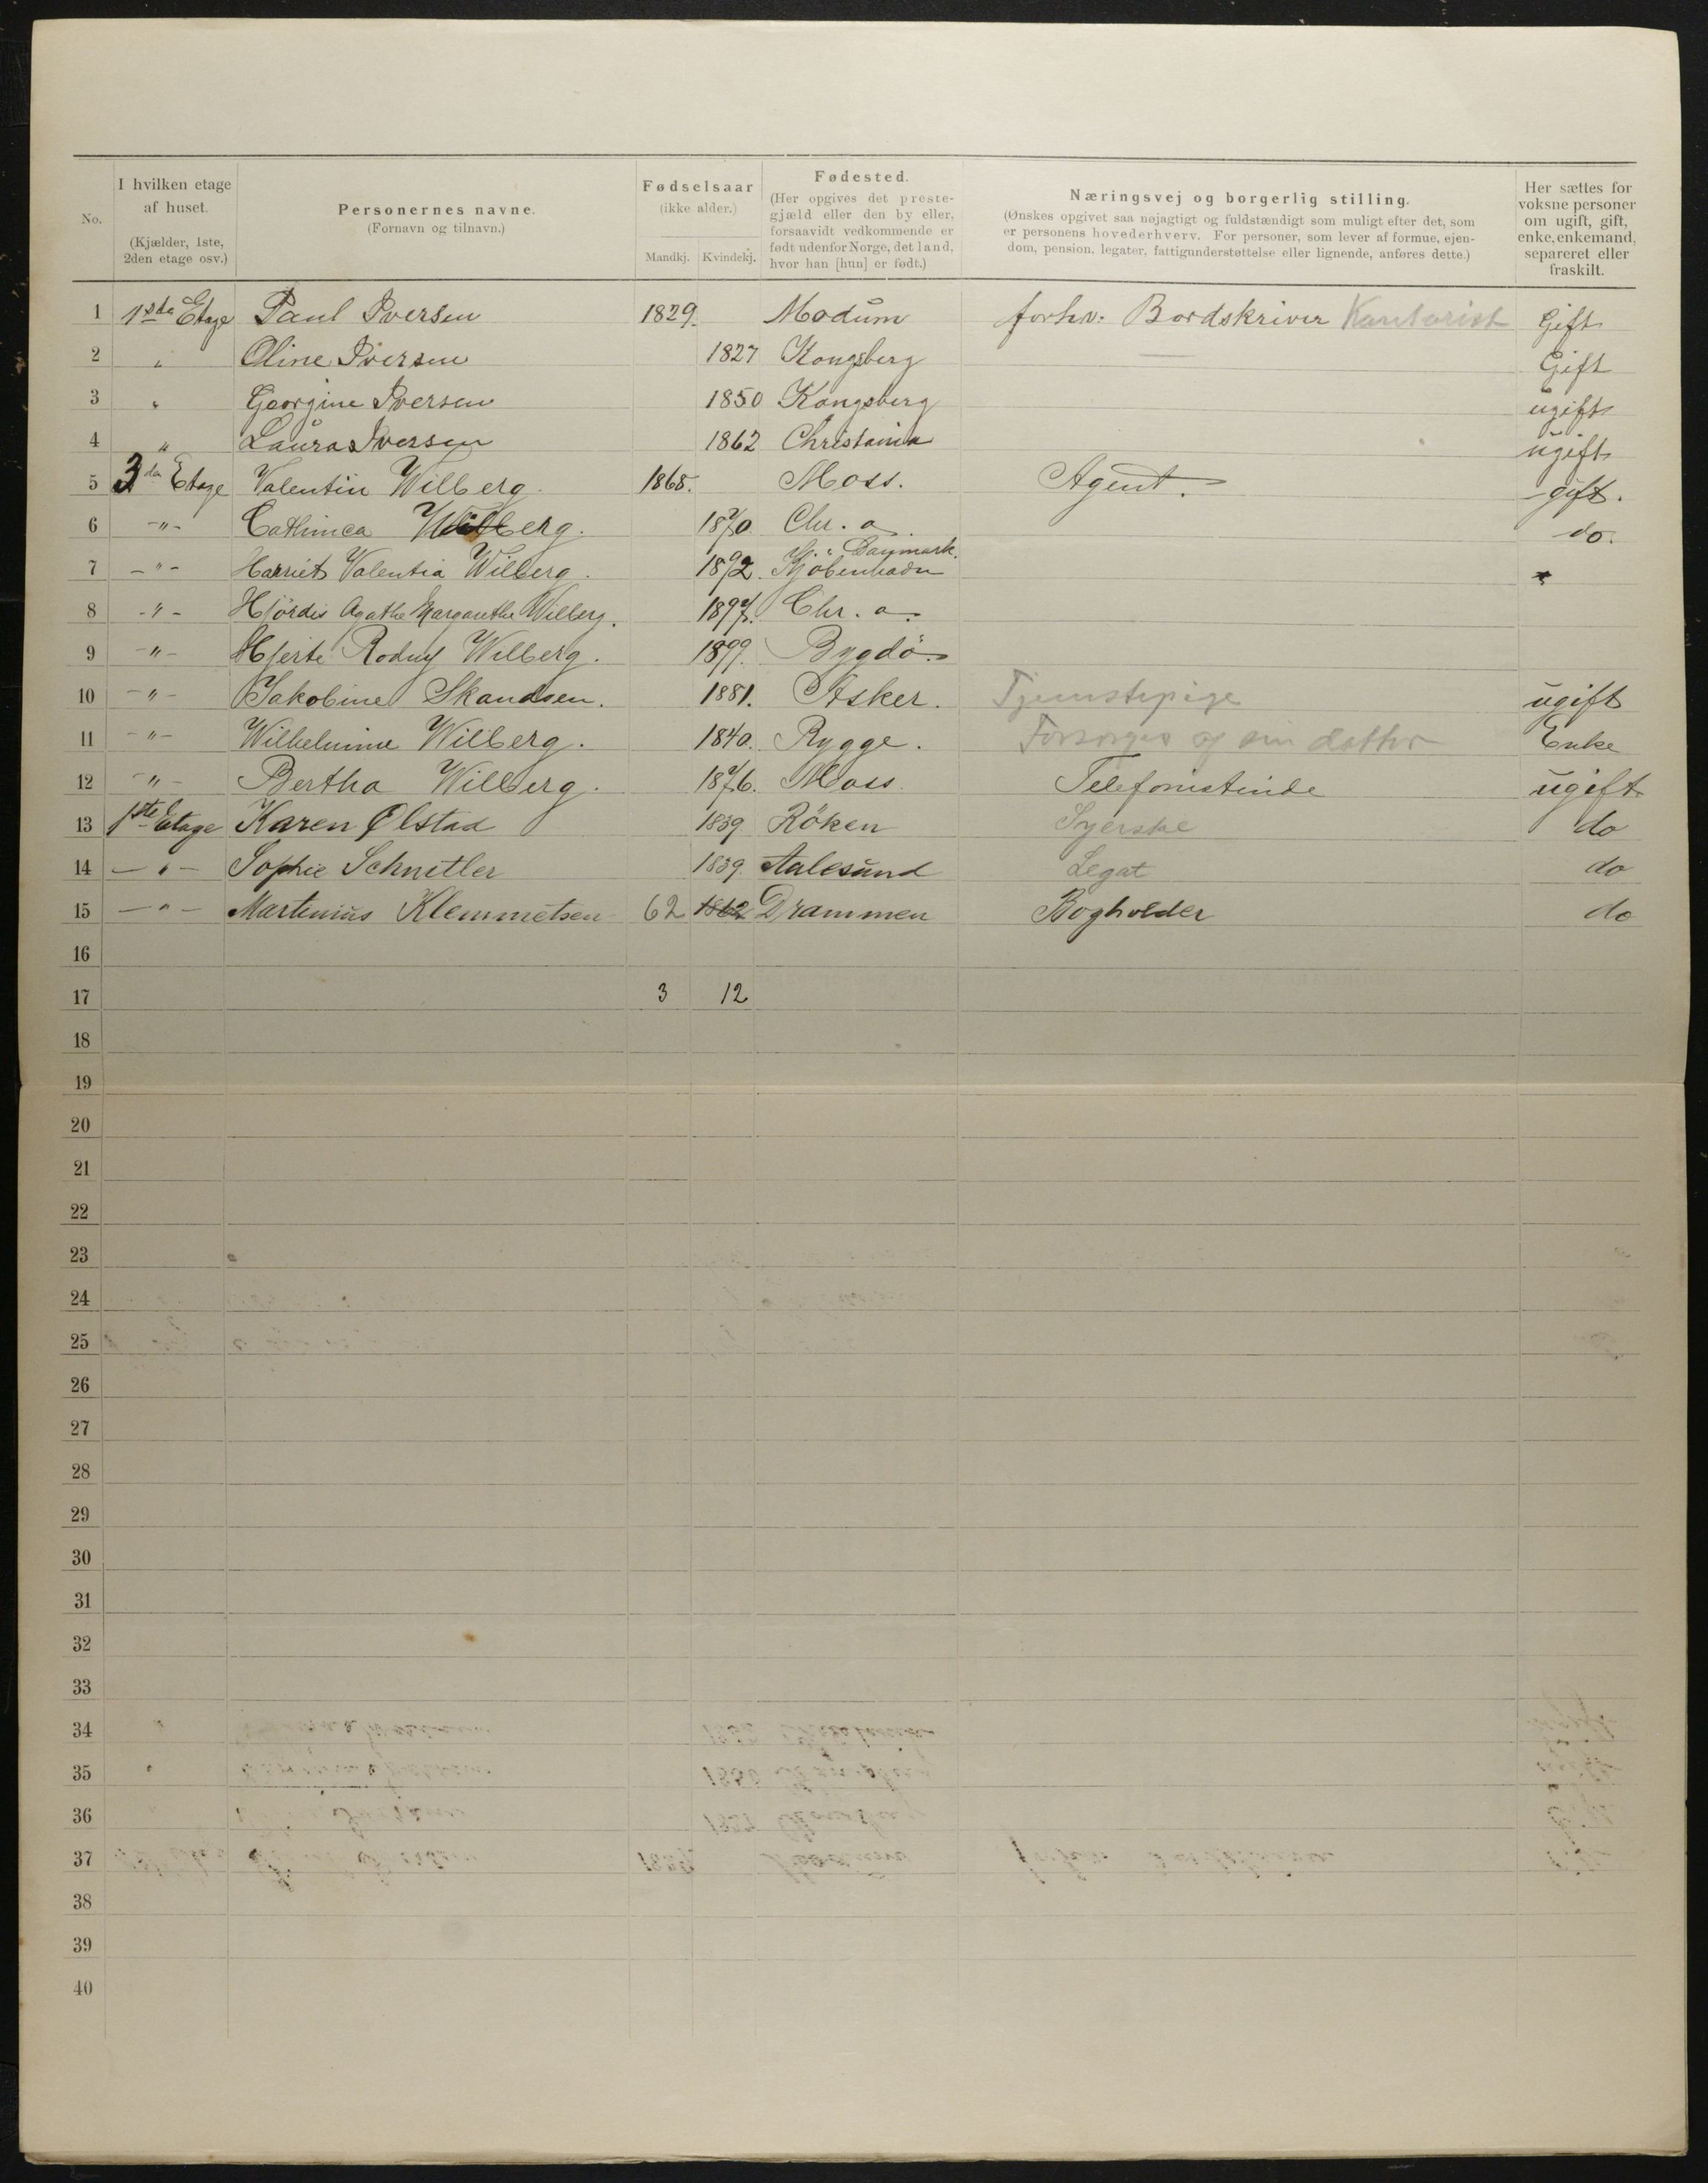 No.
I hvilken etage af huset.
(Kjælder, 1ste, 2den etage osv.)
Personernes navne.
(Fornavn og tilnavn.)
Fødselsaar
(ikke alder.)
Mandkj. Kvindekj.
Fødested.
(Her opgives det preste-
gjæld eller den by eller,
forsaavidt vedkommende er
født udenfor Norge, det land,
hvor han [hun] er født.)
Næringsvej og borgerlig stilling.
(Ønskes opgivet saa nøjagtigt og fuldstændigt som muligt efter det, som
er personens hovederhverv. For personer, som lever af formue, ejen-
dom, pension, legater, fattigunderstøttelse eller lignende, anføres dette.)
Her sættes for
voksne personer
om ugift, gift,
enke, enkemand,
separeret eller
fraskilt.
1 1ste Etage Paul Iversen 1829. Modum forhv. Bordskriver Kontorist Gift
2 " Oline Iversen 1827 Kongsberg — Gift
3 " Georgine Iversen 1850 Kongsberg ugift
4 " Laura Iversen 1862 Christania ugift
5 3de Etage Valentin Wilberg. 1868. Moss. Agent. gift.
6 -"- Cathinca Wilberg. 1870. Chr. a. do.
7 -"- Harriet Valentia Wilberg. 1892. Kjøbenhavn Danmark.
8 -"- Hjørdis Agathe Margarethe Wilberg. 1897. Chr. a.
9 -"- Hjerte Rodny Wilberg. 1899. Bygdö.
10 -"- Jakobine Skandsen. 1881. Asker. Tjenestepige ugift
11 -"- Wilhelmine Wilberg. 1840. Rygge. Forsørges af sin datter Enke
12 -"- Bertha Wilberg. 1876. Moss. Telefonistinde ugift
13 1ste Etage Karen Ølstad 1839 Röken Syerske do
14 -"- Sophie Schnitler 1839. Aalesund Legat do
15 -"- Martinius Klemmetsen 62 1862 Drammen Bogholder do
16
17 3 12
18
19
20
21
22
23
24
25
26
27
28
29
30
31
32
33
34
35
36
37
38
39
40